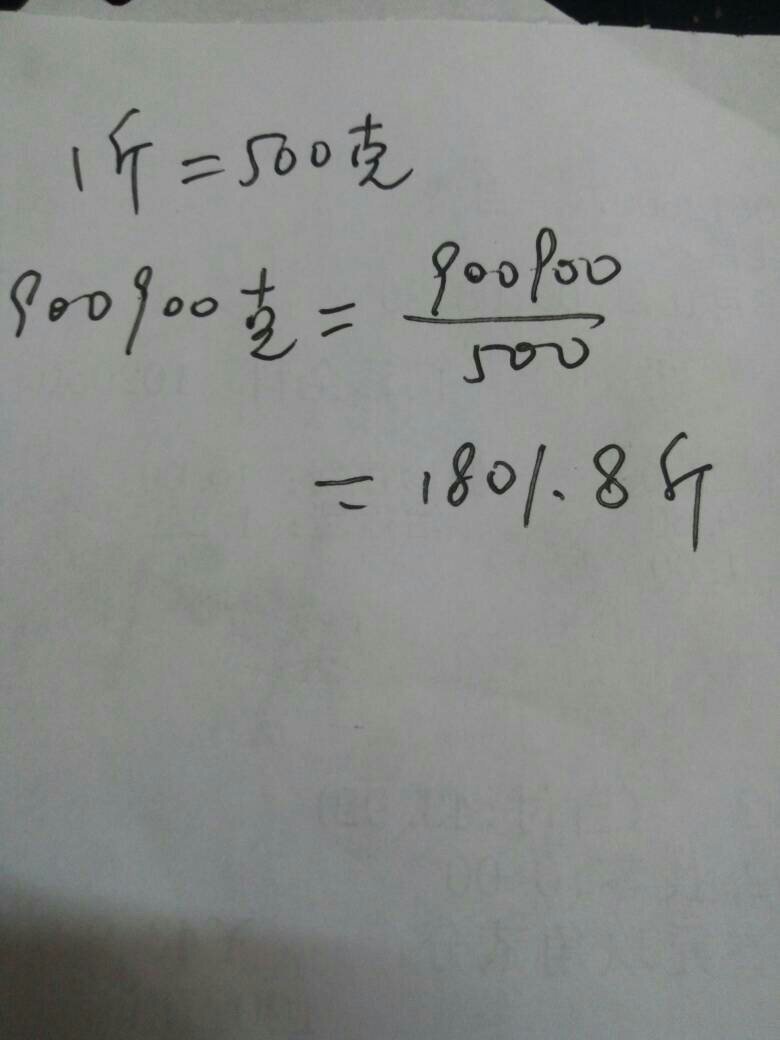 1斤=500克
900900克=900900/500
=1801.8斤